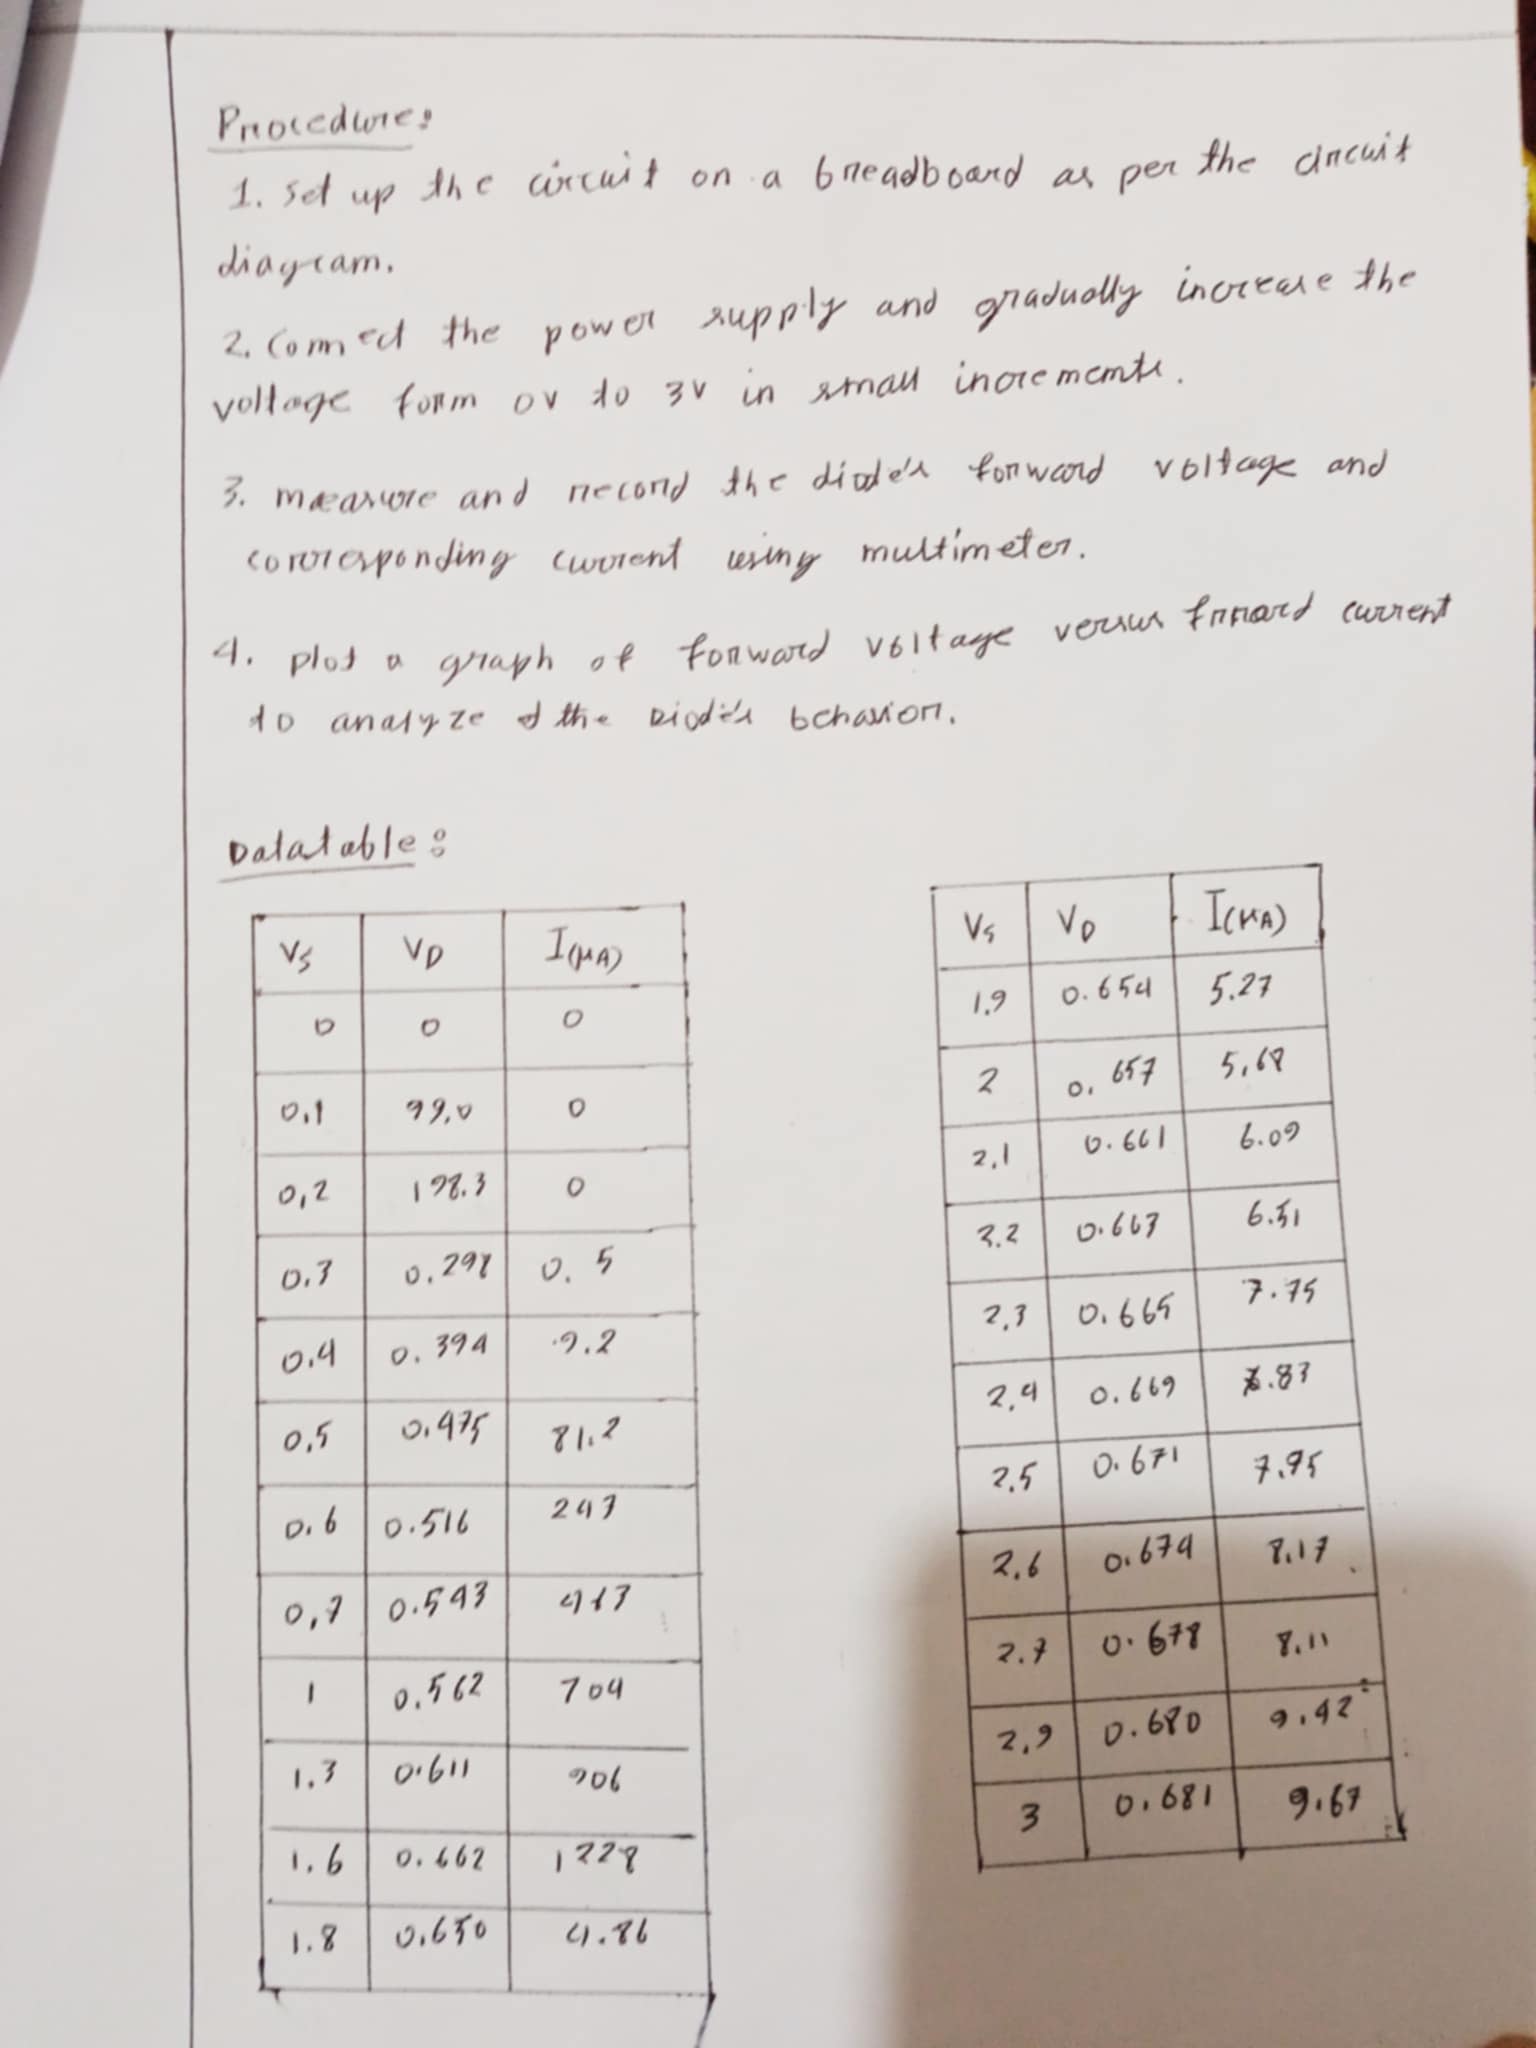 Procedure:
1. Set up the circuit on a breadboard as per the circuit
diagram.
2. Connect the power supply and gradually increase the
voltage form 0V to 3V in small increments.
3. measure and record the diode's forward voltage and
corresponding current using multimeter.
4. plot a graph of forward voltage versus current
to analyze the Diode's behavior.
Datatable:
Vs VD I(μA)
0 0 0
0.1 99.0 0
0.2 198.3 0
0.3 0.298 0.5
0.4 0.394 9.2
0.5 0.475 81.2
0.6 0.516 247
0.7 0.543
1 0.562 704
1.3 0.611 906
1.6 0.662 1228
1.8 0.650 4.86
Vs VD I(μA)
1.9 0.654 5.27
2 0.657 5.68
2.1 0.661 6.09
2.2 0.663 6.51
2.3 0.665 7.75
2.4 0.669
2.5 0.671 7.95
2.6 0.674 8.17
2.7 0.678 8.11
2.9 0.680 9.42
3 0.681 9.67